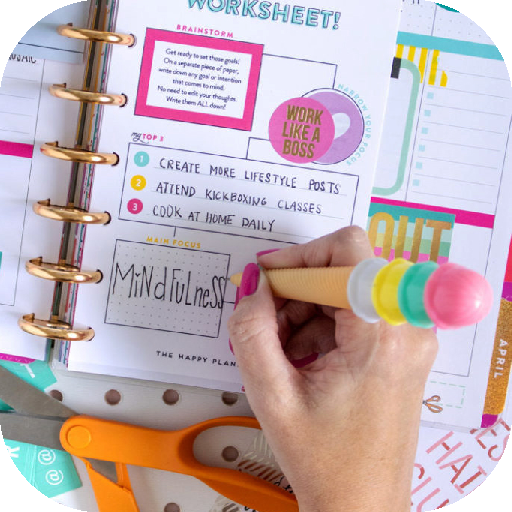 WORKSHEET!
BRAINSTORM
Get ready to set those goals!
On a separate piece of paper,
write down any goal or intention
that comes to mind.
No need to edit your thoughts
Write them ALL down!
NARROW YOUR FOCUS
WORK
LIKE A
BOSS
my TOP 3
1 CREATE MORE LIFESTYLE POSTS
2 ATTEND KICKBOXING CLASSES
3 COOK AT HOME DAILY
MAIN FOCUS
MiNdfuLness
THE HAPPY PLAN
OUT
APRIL